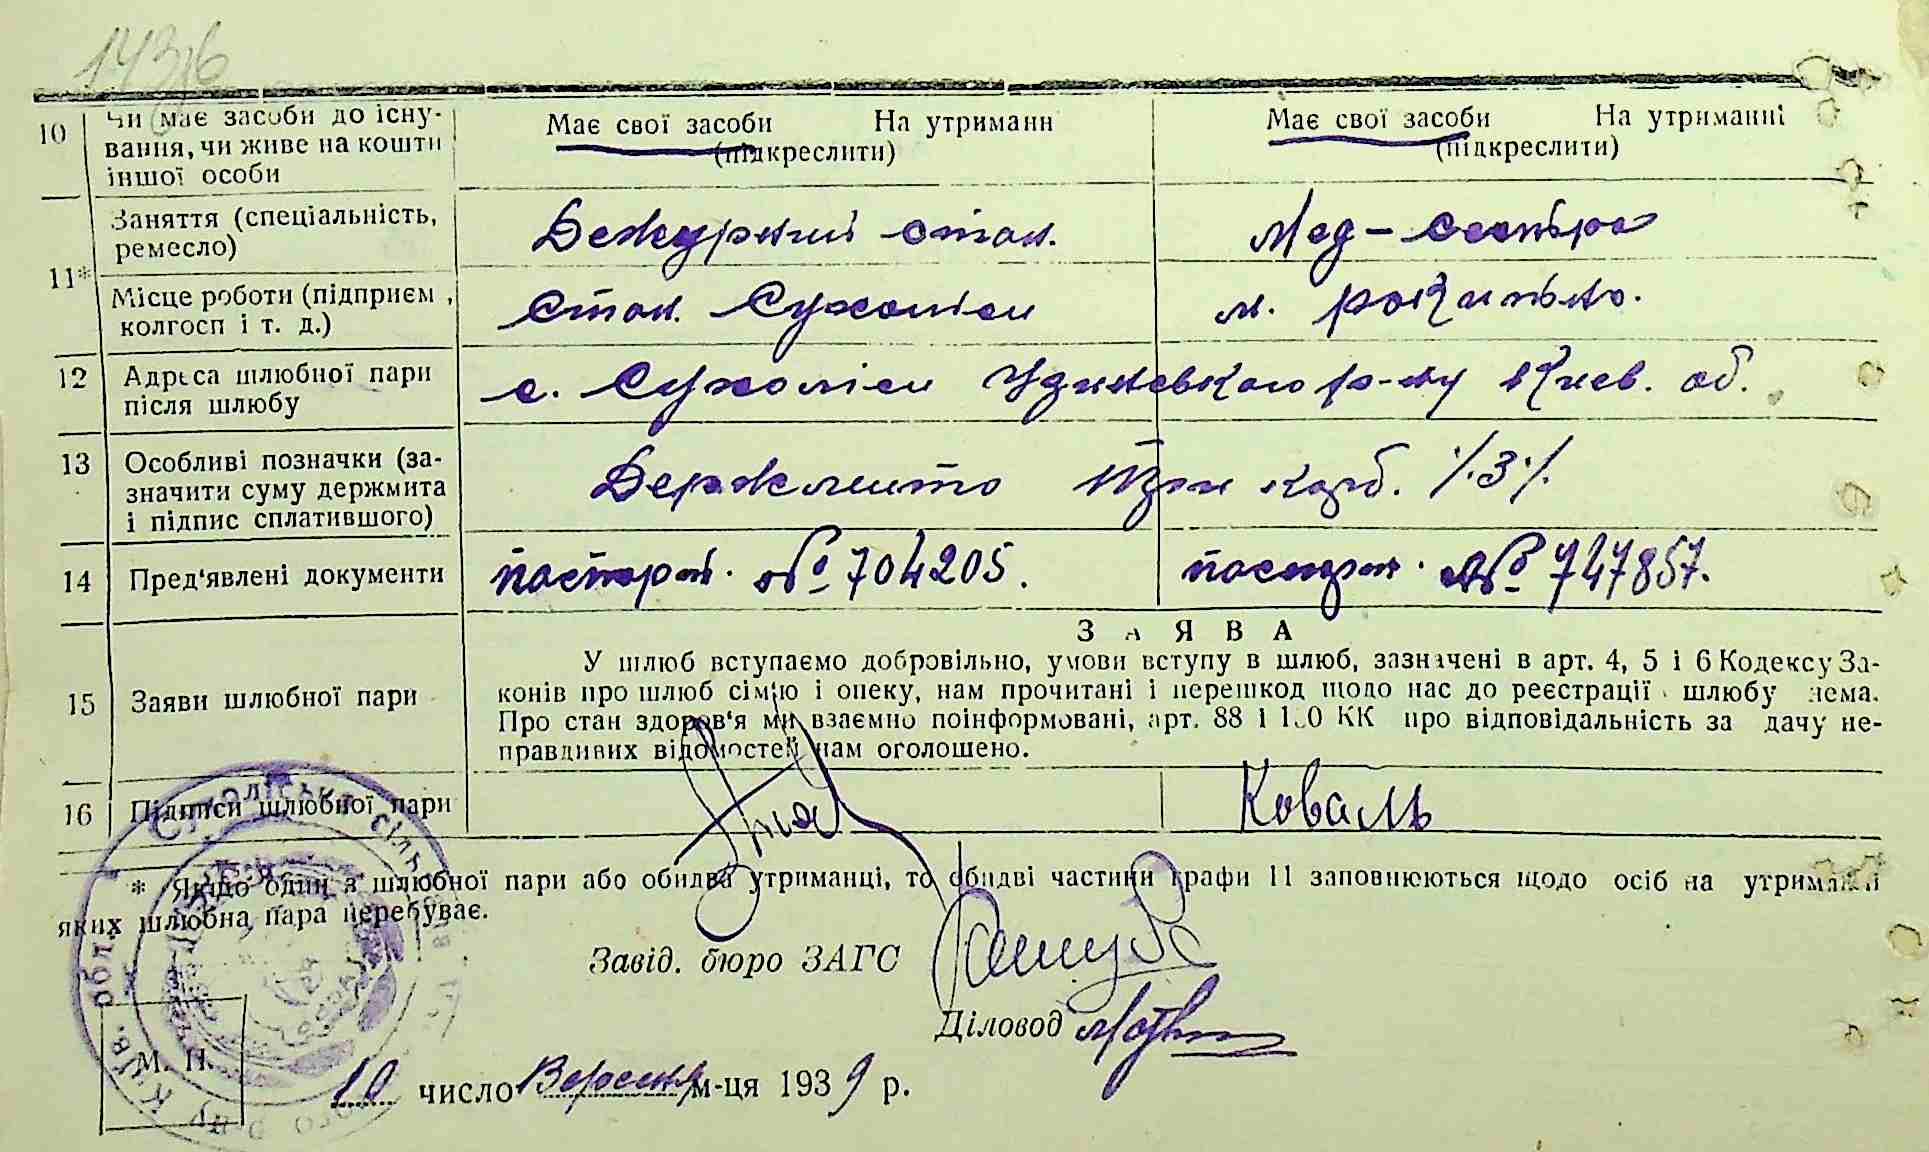 1436
10 Чи має засоби до існу- Має свої засоби На утриманн Має свої засоби На утриманні
вання, чи живе на кошти (підкреслити) (підкреслити)
іншої особи
11* Заняття (спеціальність, Дежурний стан. Мед-сестра
ремесло)
Місце роботи (підприєм , Стан. Сухоліси м. Рокитно.
колгосп і т. д.)
12 Адреса шлюбної пари с. Сухоліси Узинєвского р-ну Києв. об.
після шлюбу
13 Особливі позначки (за- Держмито три карб. /.3./.
значити суму держмита
і підпис сплатившого)
14 Пред'явлені документи паспорт. № 704205. паспорт. № 747857.
З А Я В А
15 Заяви шлюбної пари У шлюб вступаємо добровільно, умови вступу в шлюб, зазначені в арт. 4, 5 і 6 Кодексу За-
конів про шлюб сім'ю і опеку, нам прочитані і перешкод щодо нас до реєстрації шлюбу нема.
Про стан здоров'я ми взаємно поінформовані, арт. 88 і 1 0 КК про відповідальність за дачу не-
правдивих відомостей нам оголошено.
16 Підписи шлюбної пари Коваль
* Якщо один з шлюбної пари або обидва утриманці, то обидві частини графи 11 заповнюються щодо осіб на утриманні
яких шлюбна пара перебуває.
Завід. бюро ЗАГС
Діловод
М. П.
10 число Вересня м-ця 1939 р.